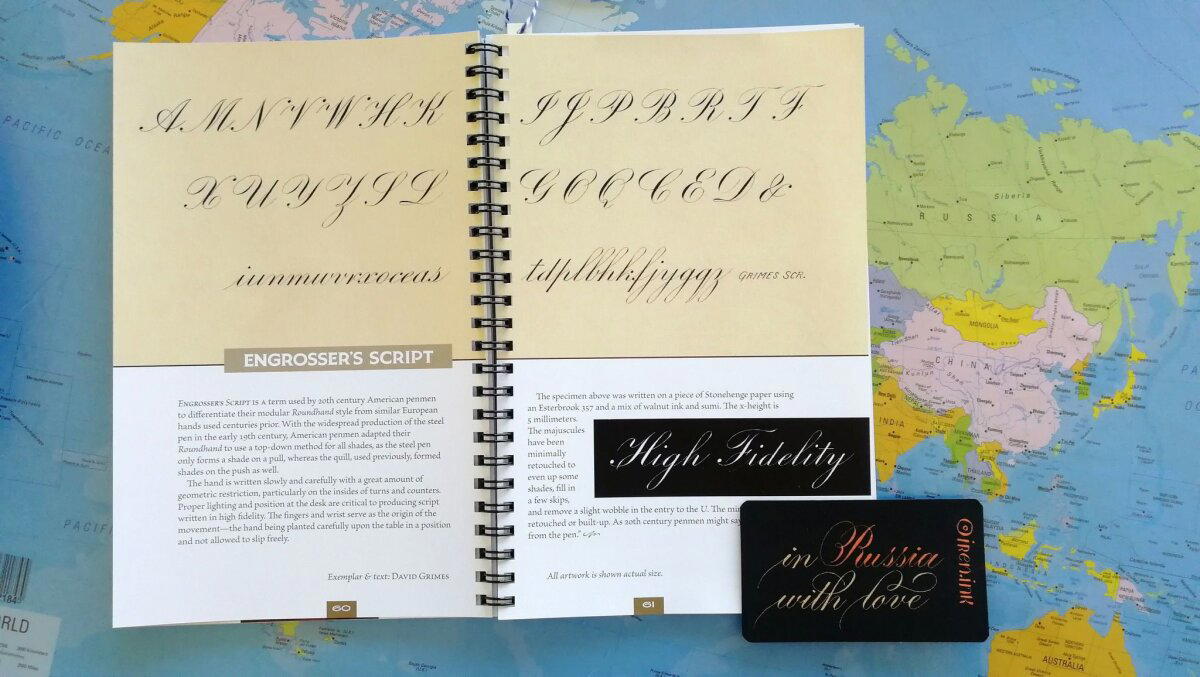 A M N V W H K
X U Y Z S L
iunmwvrxoceas
ENGROSSER'S SCRIPT
ENGROSSER'S SCRIPT IS A term used by 20th century American penmen
to differentiate their modular Roundhand style from similar European
hands used centuries prior. With the widespread production of the steel
pen in the early 19th century, American penmen adapted their
Roundhand to use a top-down method for all shades, as the steel pen
only forms a shade on a pull, whereas the quill, used previously, formed
shades on the push as well.
The hand is written slowly and carefully with a great amount of
geometric restriction, particularly on the insides of turns and counters.
Proper lighting and position at the desk are critical to producing script
written in high fidelity. The fingers and wrist serve as the origin of the
movement—the hand being planted carefully upon the table in a position
and not allowed to slip freely.
Exemplar & text: DAVID GRIMES
60
I J P B R T F
G O Q C E D &
tdplbhkfjyggz GRIMES SCR.
The specimen above was written on a piece of Stonehenge paper using
an Esterbrook 357 and a mix of walnut ink and sumi. The x-height is
5 millimeters.
The majuscules
have been
minimally
retouched to
even up some
shades, fill in
a few skips,
and remove a slight wobble in the entry to the U. The
retouched or built-up. As 20th century penmen might say
from the pen."
High Fidelity
All artwork is shown actual size.
61
in Russia
with love
@iren.ink
PACIFIC OCEA
PACIFI
RLD
184
Siberia
RUSSIA
MONGOLIA
CHINA
INDIA
JAPAN
MYANMAR
THAILAND
PAPUA
NEW GUINEA
AUSTRALIA